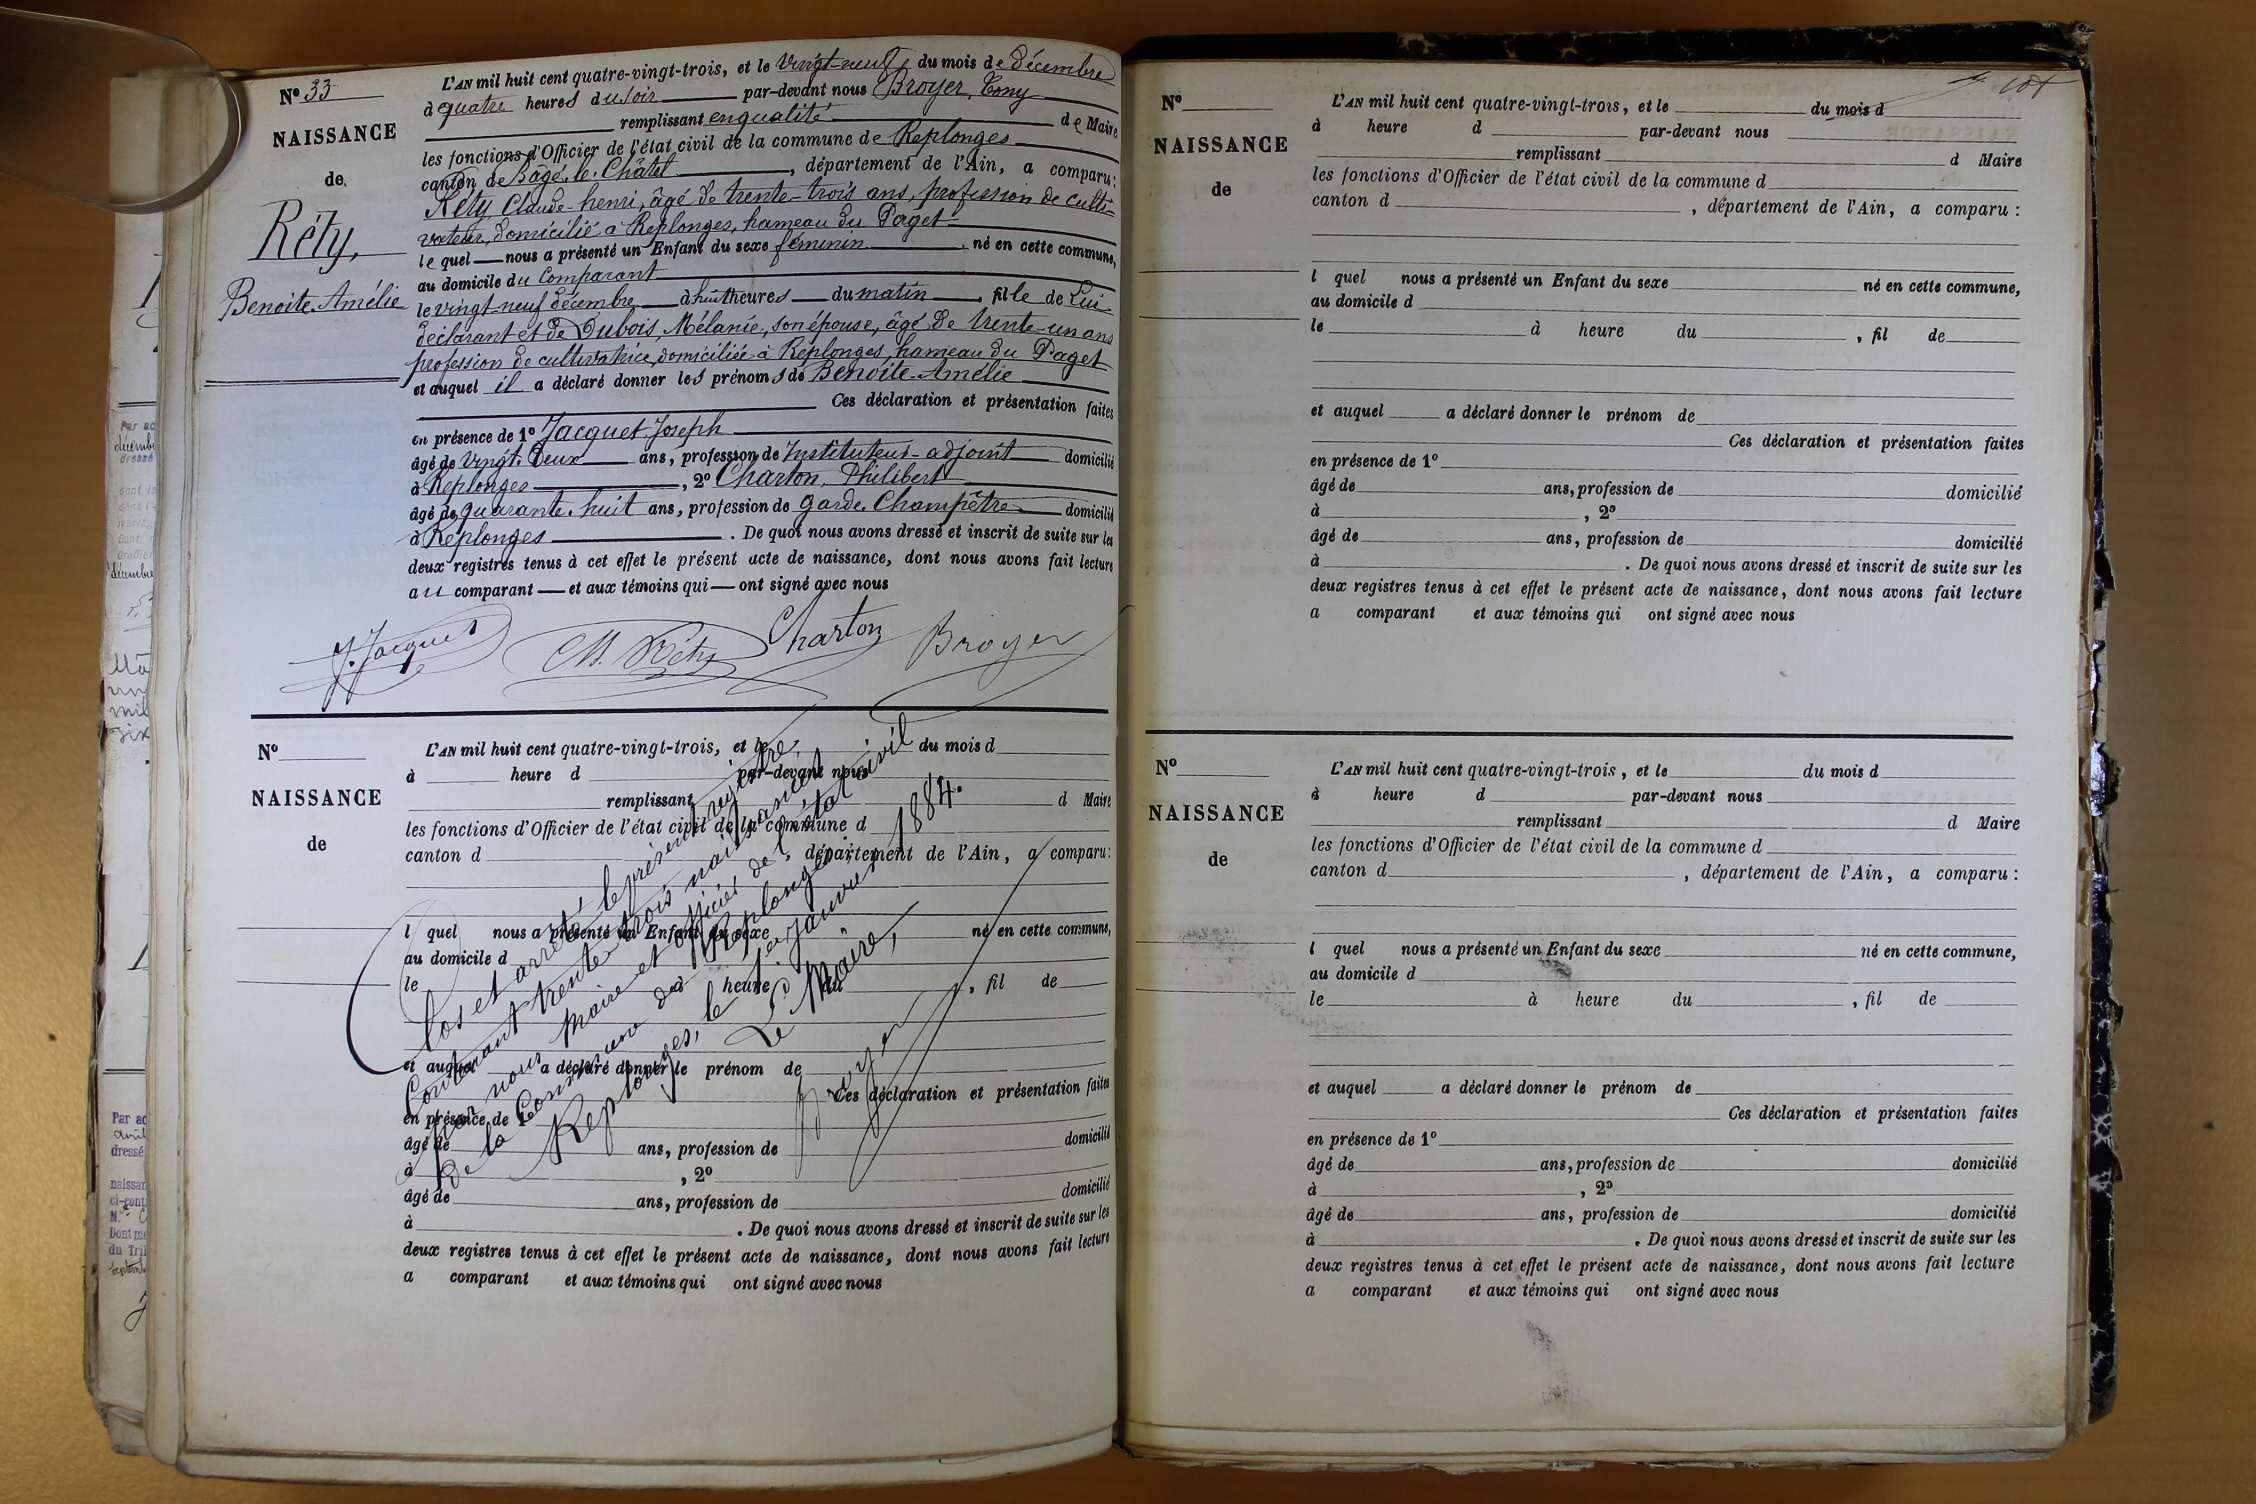 N° 33
NAISSANCE
de
Réty,
Benoite-Amélie
L'AN mil huit cent quatre-vingt-trois, et le vingt-neuf du mois de décembre
à quatre heures du soir par-devant nous Broyer, Tony
remplissant en qualité de Maire
les fonctions d'Officier de l'état civil de la commune de Replonges
canton de Bâgé-le-Châtel, département de l'Ain, a comparu :
Réty Claude-henri, âgé de trente-trois ans, profession de culti-
vateur, domicilié à Replonges, hameau du Paget
le quel nous a présenté un Enfant du sexe féminin né en cette commune,
au domicile du Comparant
le vingt-neuf décembre à huit heures du matin, fille de Lui
déclarant et de Dubois, Mélanie, son épouse, âgé de trente-un ans
profession de cultivatrice, domiciliée à Replonges, hameau du Paget
et auquel il a déclaré donner les prénoms de Benoite-Amélie
Ces déclaration et présentation faites
en présence de 1° Jacquet, Joseph
âgé de vingt-deux ans, profession de Instituteur-adjoint domicilié
à Replonges, 2° Charton, Philibert
âgé de quarante-huit ans, profession de garde-Champêtre domicilié
à Replonges. De quoi nous avons dressé et inscrit de suite sur les
deux registres tenus à cet effet le présent acte de naissance, dont nous avons fait lecture
au comparant et aux témoins qui ont signé avec nous
J. Jacquet Réty Charton Broyer
N°
NAISSANCE
de
L'AN mil huit cent quatre-vingt-trois, et le du mois d
à heure d par-devant nous
remplissant d Maire
les fonctions d'Officier de l'état civil de la commune d
canton d , département de l'Ain, a comparu :
l quel nous a présenté un Enfant du sexe né en cette commune,
au domicile d
le à heure du , fil de
et auquel a déclaré donner le prénom de
Ces déclaration et présentation faites
en présence de 1°
âgé de ans, profession de domicilié
à , 2°
âgé de ans, profession de domicilié
à . De quoi nous avons dressé et inscrit de suite sur les
deux registres tenus à cet effet le présent acte de naissance, dont nous avons fait lecture
a comparant et aux témoins qui ont signé avec nous
Clos et arrêté le présent registre
Contenant trente-trois naissances
par nous maire et officier de l'état civil
de la Commune de Replonges
Replonges, le 1er janvier 1884.
Le Maire,
Broyer
N°
NAISSANCE
de
L'AN mil huit cent quatre-vingt-trois, et le du mois d
à heure d par-devant nous
remplissant d Maire
les fonctions d'Officier de l'état civil de la commune d
canton d , département de l'Ain, a comparu :
l quel nous a présenté un Enfant du sexe né en cette commune,
au domicile d
le à heure du , fil de
et auquel a déclaré donner le prénom de
Ces déclaration et présentation faites
en présence de 1°
âgé de ans, profession de domicilié
à , 2°
âgé de ans, profession de domicilié
à . De quoi nous avons dressé et inscrit de suite sur les
deux registres tenus à cet effet le présent acte de naissance, dont nous avons fait lecture
a comparant et aux témoins qui ont signé avec nous
N°
NAISSANCE
de
L'AN mil huit cent quatre-vingt-trois, et le du mois d
à heure d par-devant nous
remplissant d Maire
les fonctions d'Officier de l'état civil de la commune d
canton d , département de l'Ain, a comparu :
l quel nous a présenté un Enfant du sexe né en cette commune,
au domicile d
le à heure du , fil de
et auquel a déclaré donner le prénom de
Ces déclaration et présentation faites
en présence de 1°
âgé de ans, profession de domicilié
à , 2°
âgé de ans, profession de domicilié
à . De quoi nous avons dressé et inscrit de suite sur les
deux registres tenus à cet effet le présent acte de naissance, dont nous avons fait lecture
a comparant et aux témoins qui ont signé avec nous